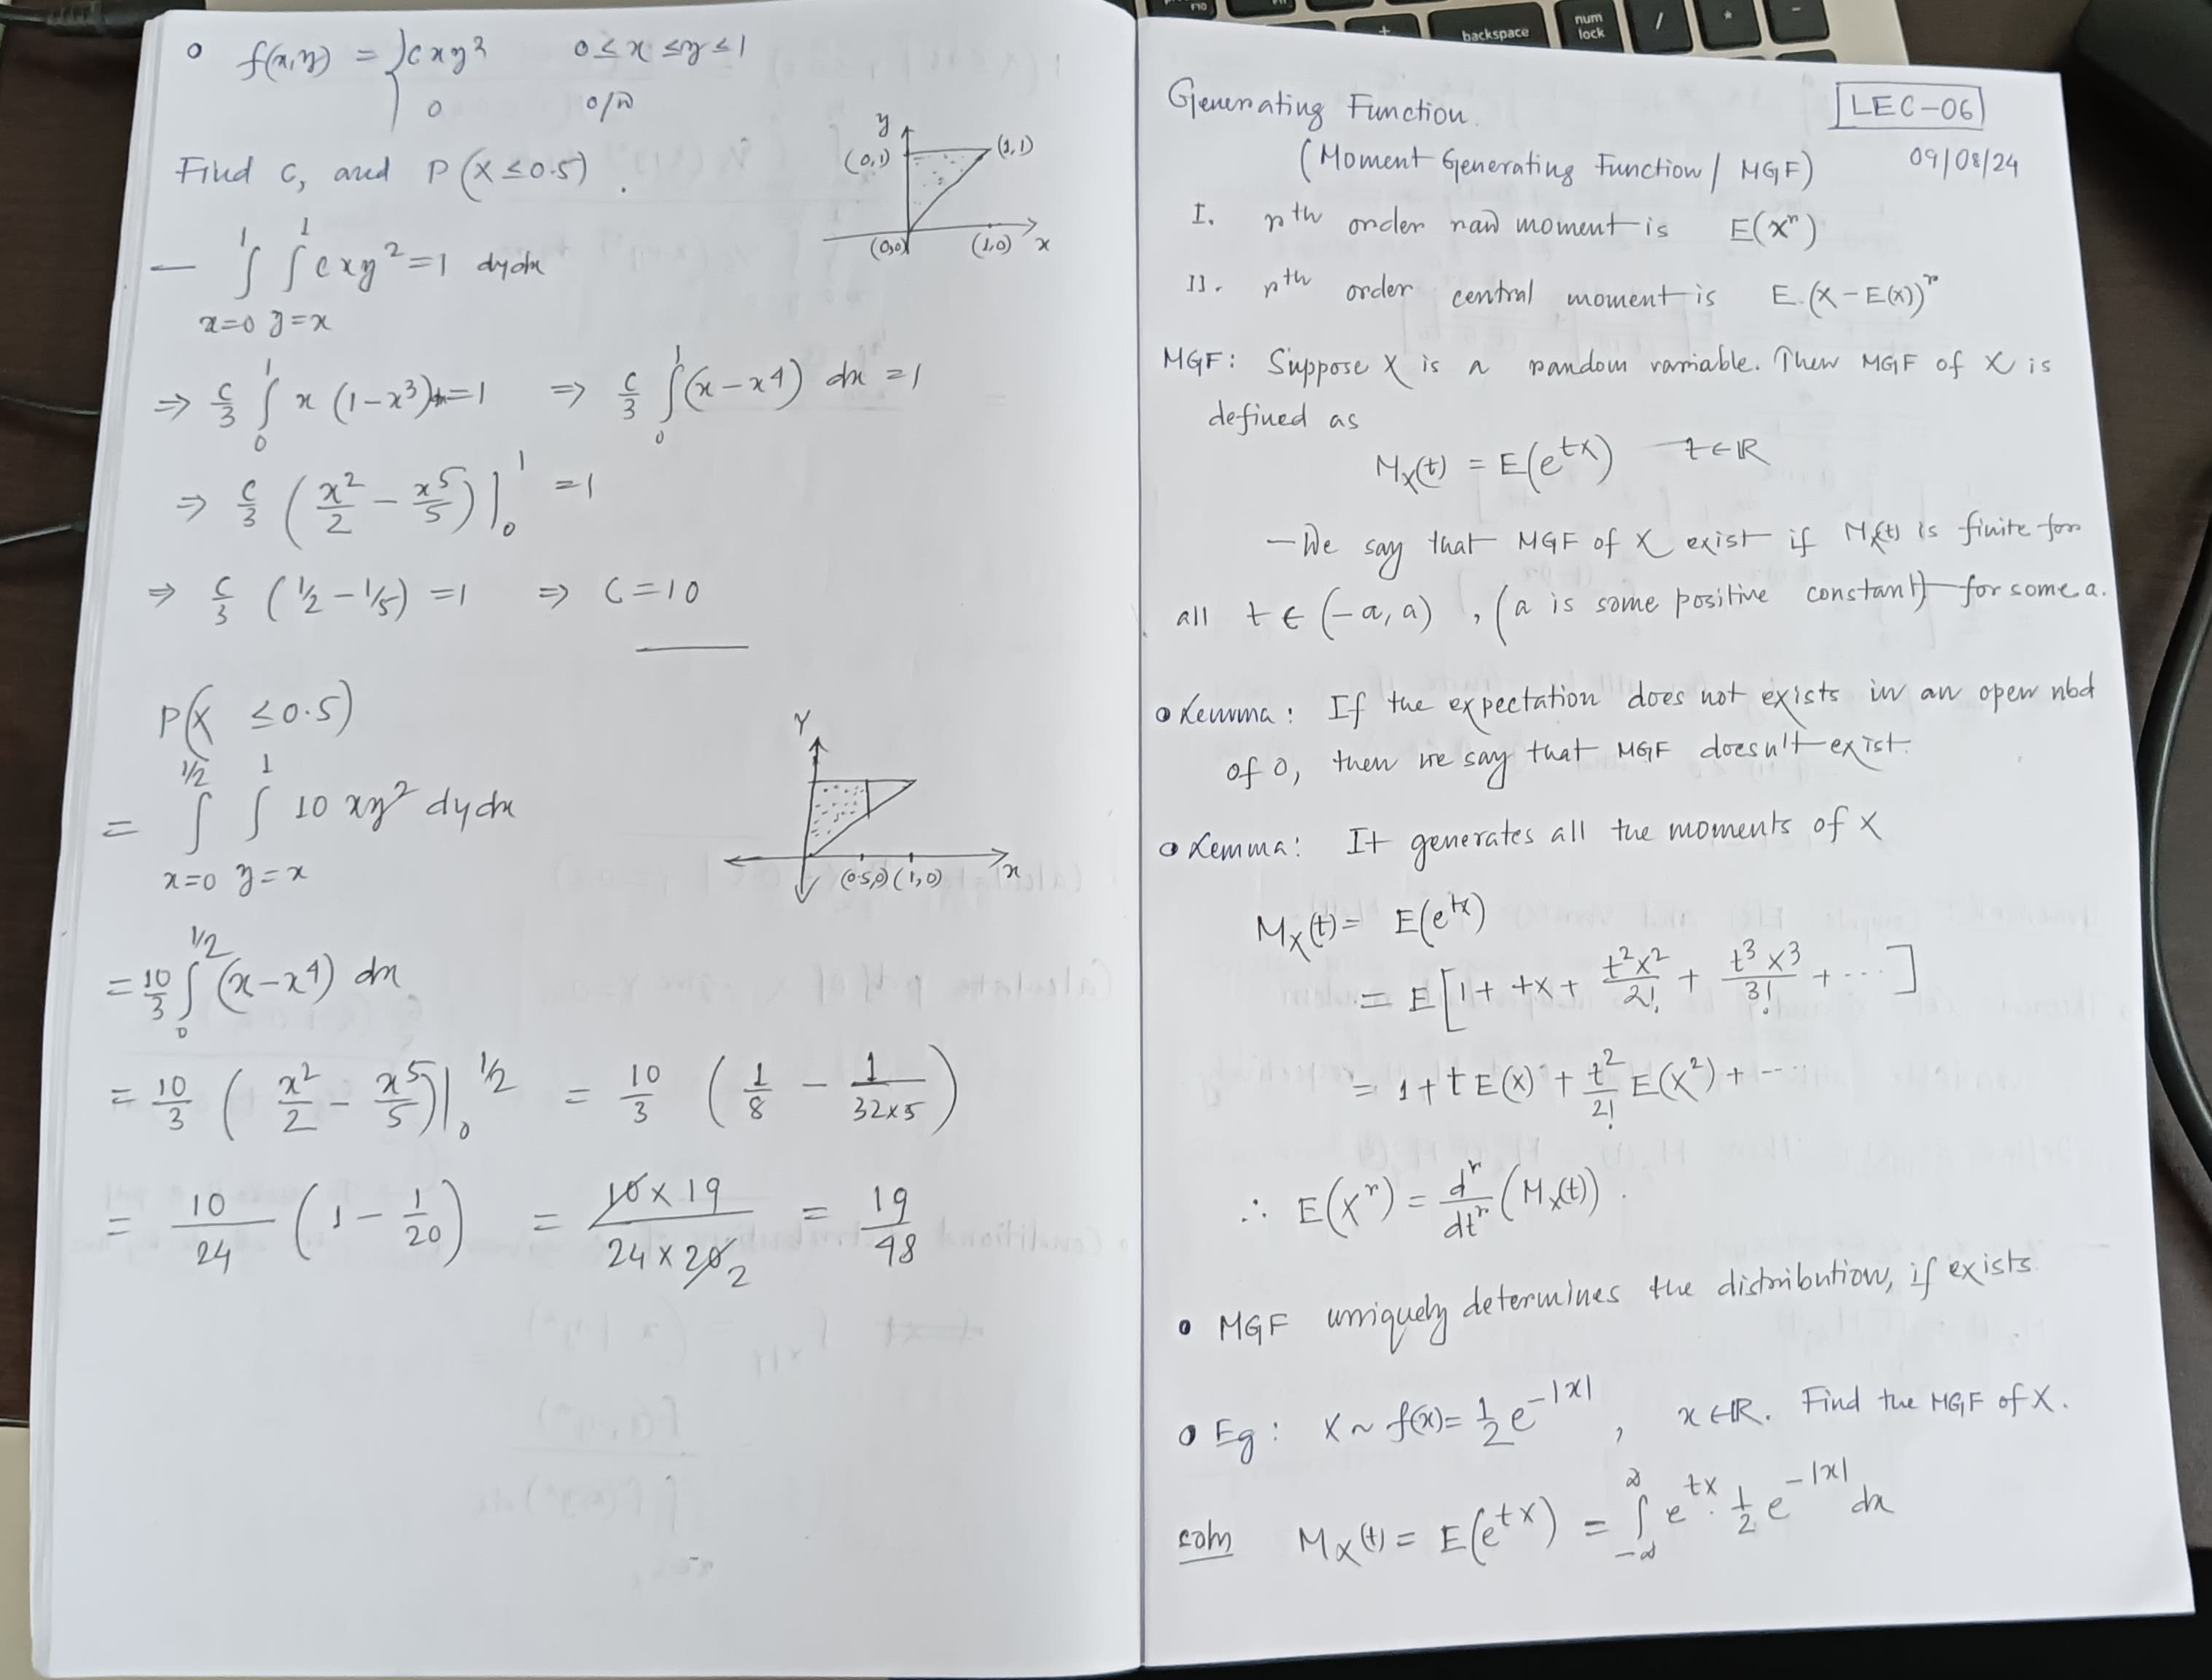 F10
backspace
num lock
/
*
-
+
o f(x,y) = { cxy² 0 ≤ x ≤ y ≤ 1
0 o/w
Find c, and P(X ≤ 0.5).
y
(0,1) (1,1)
(0,0) (1,0) x
— ∫_{x=0}^{1} ∫_{y=x}^{1} cxy² = 1 dydx
⇒ c/3 ∫_0^1 x (1-x³) = 1 ⇒ c/3 ∫_0^1 (x-x⁴) dx = 1
⇒ c/3 (x²/2 - x⁵/5) |_0^1 = 1
⇒ c/3 (1/2 - 1/5) = 1 ⇒ C = 10
P(X ≤ 0.5)
= ∫_{x=0}^{1/2} ∫_{y=x}^{1} 10 xy² dydx
Y
(0.5,0) (1,0) x
= 10/3 ∫_0^{1/2} (x-x⁴) dx
= 10/3 (x²/2 - x⁵/5) |_0^{1/2} = 10/3 (1/8 - 1/(32×5))
= 10/24 (1 - 1/20) = (10×19)/(24×20 2) = 19/48
LEC-06
Generating Function.
(Moment Generating Function / MGF) 09/08/24
I. rth order raw moment is E(X^r)
II. rth order central moment is E(X-E(X))^r
MGF: Suppose X is a random variable. Then MGF of X is
defined as
M_X(t) = E(e^{tX}) t ∈ ℝ
– We say that MGF of X exist if M_X(t) is finite for
all t ∈ (-a, a), (a is some positive constant) for some a.
o Lemma: If the expectation does not exists in an open nbd
of 0, then we say that MGF doesn't exist.
o Lemma: It generates all the moments of X
M_X(t) = E(e^{tX})
= E[1 + tX + t²X²/2! + t³X³/3! + ...]
= 1 + t E(X) + t²/2! E(X²) + ...
∴ E(X^r) = d^r/dt^r (M_X(t)).
o MGF uniquely determines the distribution, if exists.
o Eg: X ~ f(x) = 1/2 e^{-|x|}, x ∈ ℝ. Find the MGF of X.
soln M_X(t) = E(e^{tX}) = ∫_{-∞}^{∞} e^{tx} · 1/2 e^{-|x|} dx